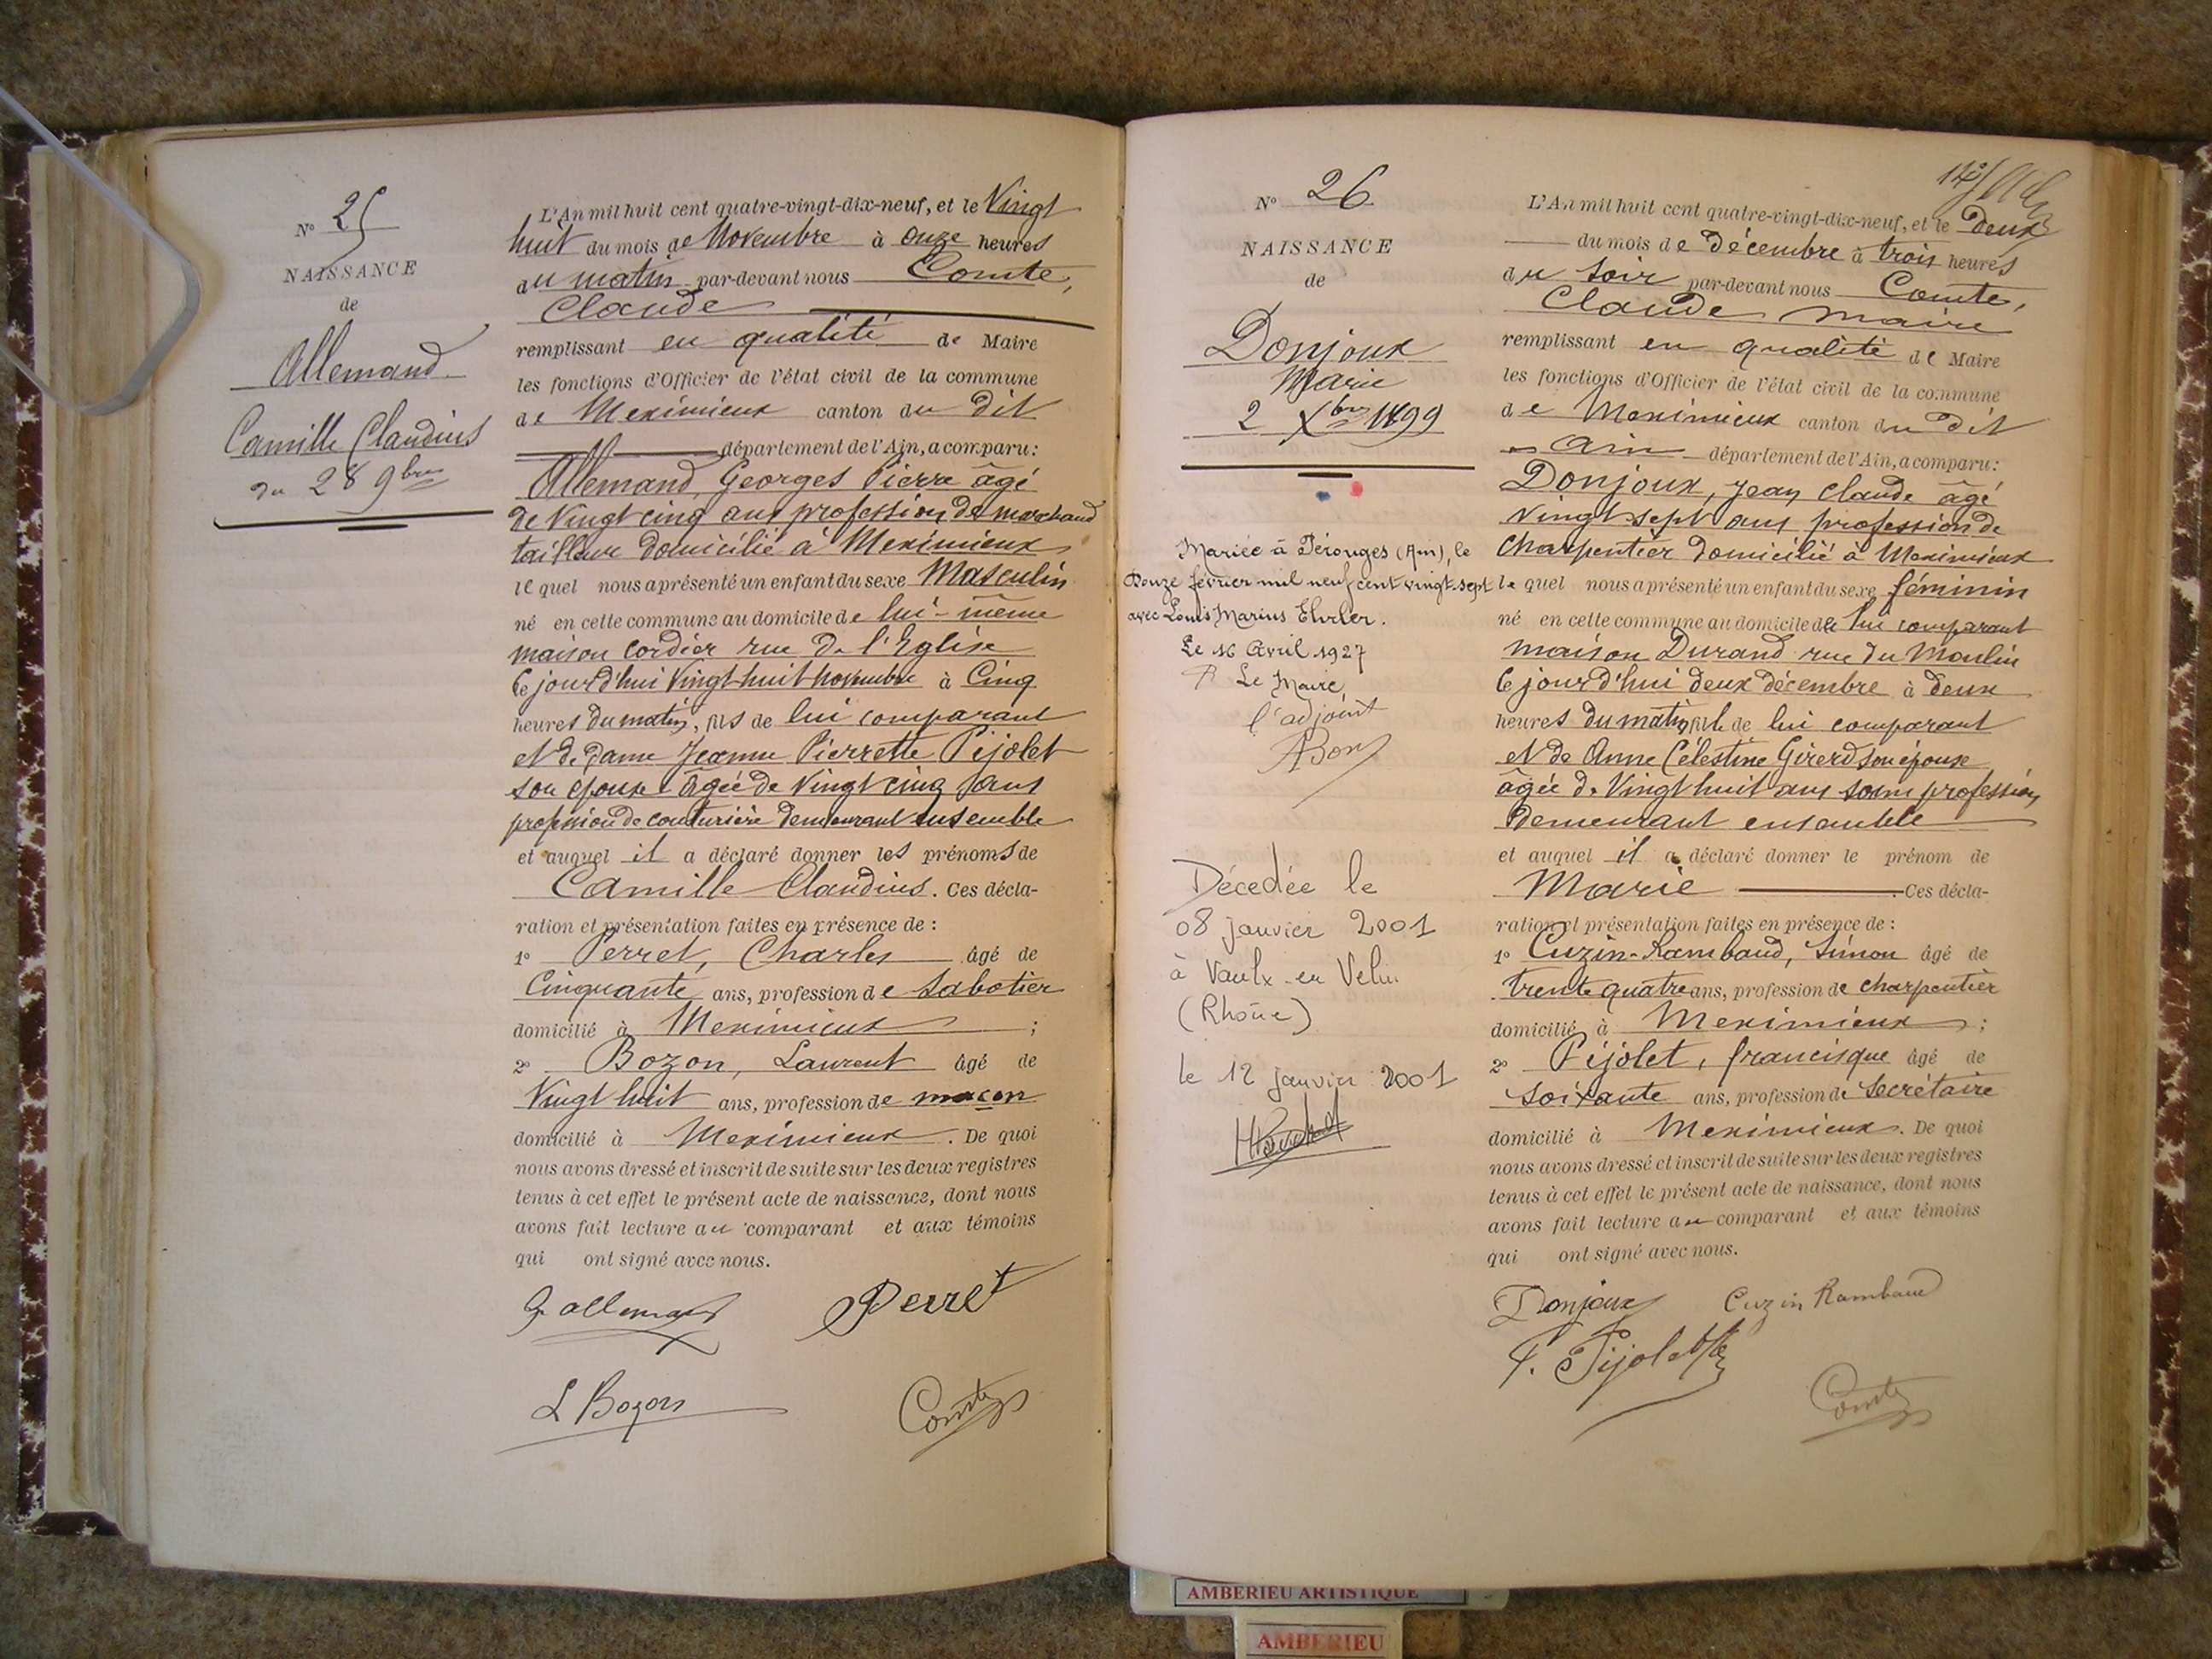 N° 25
NAISSANCE
de
Allemand
Camille Claudius
du 28 9bre
L'An mil huit cent quatre-vingt-dix-neuf, et le Vingt
huit du mois de Novembre à onze heures
du matin par-devant nous Comte,
Claude
remplissant en qualité de Maire
les fonctions d'Officier de l'état civil de la commune
de Meximieux canton du dit
département de l'Ain, a comparu:
Allemand, Georges Pierre âgé
de Vingt cinq ans profession de marchand
tailleur domicilié à Meximieux
lequel nous a présenté un enfant du sexe Masculin
né en cette commune au domicile de lui-même
maison Cordier rue de l'Eglise
ce jourd'hui Vingt-huit novembre à Cinq
heures du matin, fils de lui comparant
et de dame Jeanne Pierrette Pijolet
son épouse âgée de Vingt cinq ans
profession de couturière demeurant ensemble
et auquel il a déclaré donner les prénoms de
Camille Claudius. Ces décla-
ration et présentation faites en présence de :
1° Perret, Charles âgé de
Cinquante ans, profession de Sabotier
domicilié à Meximieux ;
2° Bozon, Laurent âgé de
Vingt huit ans, profession de maçon
domicilié à Meximieux. De quoi
nous avons dressé et inscrit de suite sur les deux registres
tenus à cet effet le présent acte de naissance, dont nous
avons fait lecture au comparant et aux témoins
qui ont signé avec nous.
G allemand Perret
L Bozon Comte
N° 26
NAISSANCE
de
Donjoux
Marie
2 Xbre 1899
Mariée à Pérouges (Ain), le
douze février mil neuf cent vingt-sept
avec Louis Marius Ehrler.
Le 16 Avril 1927
Le Maire,
l'adjoint
ABon
Décedée le
08 janvier 2001
à Vaulx-en Velin
(Rhône)
le 12 janvier 2001
L'An mil huit cent quatre-vingt-dix-neuf, et le Deux
du mois de Décembre à trois heures
du soir par-devant nous Comte,
Claude maire
remplissant en qualité de Maire
les fonctions d'Officier de l'état civil de la commune
de Meximieux canton du dit
Ain département de l'Ain, a comparu:
Donjoux, Jean Claude âgé
Vingt-sept ans profession de
Charpentier domicilié à Meximieux
lequel nous a présenté un enfant du sexe féminin
né en cette commune au domicile de lui comparant
maison Durand rue du Moulin
ce jourd'hui deux décembre à deux
heures du matin, fille de lui comparant
et de Anne Célestine Girerd son épouse
âgée de Vingt huit ans sans profession
demeurant ensemble
et auquel il a déclaré donner le prénom de
Marie Ces décla-
ration et présentation faites en présence de :
1° Cuzin-Rambaud, Simon âgé de
trente quatre ans, profession de charpentier
domicilié à Meximieux ;
2° Pijolet, francisque âgé de
soixante ans, profession de Secrétaire
domicilié à Meximieux. De quoi
nous avons dressé et inscrit de suite sur les deux registres
tenus à cet effet le présent acte de naissance, dont nous
avons fait lecture au comparant et aux témoins
qui ont signé avec nous.
Donjoux Cuzin Rambaud
F. Pijolet
Comte
AMBERIEU ARTISTIQUE
AMBERIEU